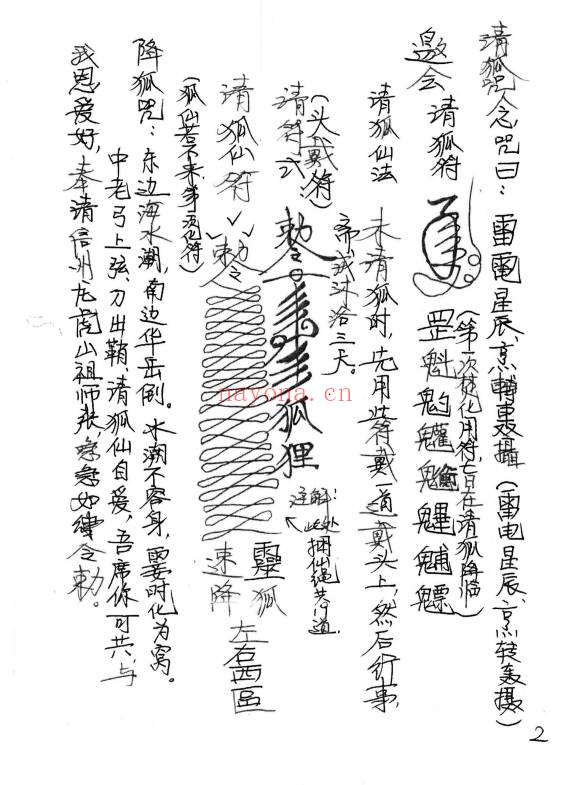 请狐咒念咒曰：雷電星辰，烹轉轰攝（雷电星辰，烹转轰摄）
（第一次焚化用符，旨在清狐降临）
邀会 请狐符 罡魁魁
请狐仙法 未请狐时，先用此符戴一道戴头上，然后行事，
斋戒沐浴三天。
（头戴符）
请符式 敕令 狐狸
注解：
此处捆仙绳共　道
请狐仙符 敕令 靈狐 速降 左右西區
（狐仙若不来，第二次化符）
降狐咒：东边海水潮，南边华岳倒。水潮不容身，要时化为窝。
中老弓上弦，刀出鞘，请狐仙自爱，吾席你可共，与
我恩爱好，奉请信州龙虎山祖师张，急急如律令敕。
nayona.cn
2